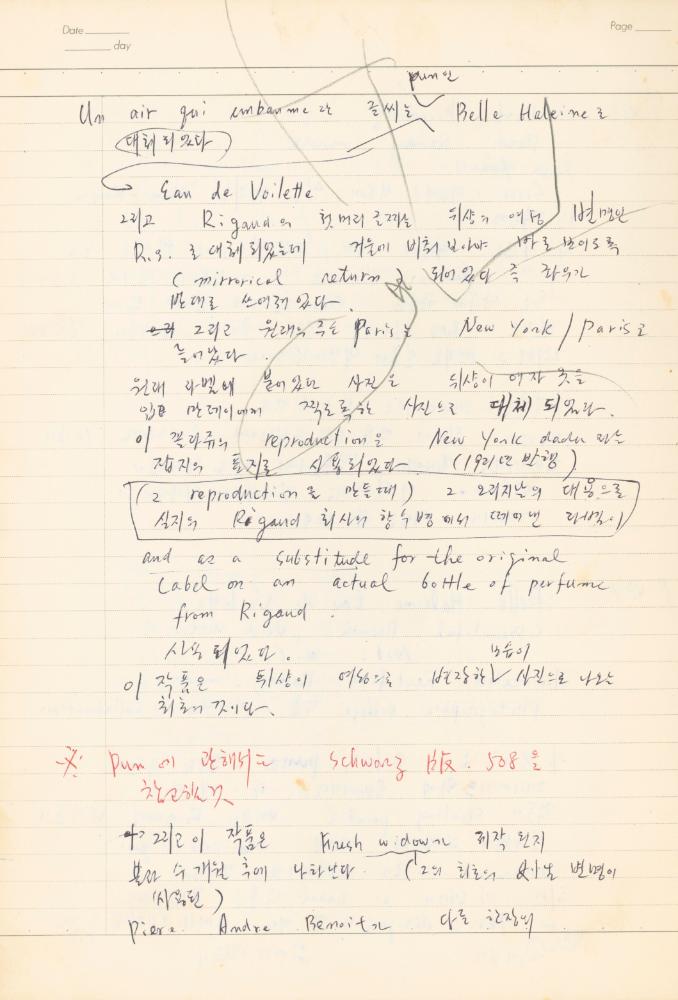 Date
day
Page
pun인
Un air qui embaume라 글씨는 Belle Haleine로
대체되었다
Eau de Voilette
그리고 Rigaud의 첫머리글자는 뒤샹의 여성 변명인
R.S. 로 대체되었는데 거울에 비춰 보아야 바로 보이도록
(mirrorical return) 되어있다 즉 좌우가
반대로 쓰여져 있다.
그리고 원래의 주소 Paris는 New York / Paris로
늘어났다.
원래 라벨에 붙어있던 사진은 뒤샹이 여자 옷을
입은 만레이에게 찍도록한 사진으로 대체 되었다.
이 꼴라쥬의 reproduction은 New York dada 라는
잡지의 표지로 사용되었다. (1921년 발행)
(그 reproduction을 만들때) 그 오리지날의 대용으로
실지의 Rigaud 회사의 향수병에서 떼어낸 라벨이
and as a substitude for the original
Label on an actual bottle of perfume
from Rigaud.
사용 되었다.
모습이
이 작품은 뒤샹이 여성으로 변장한 사진으로 나오는
최초의 것이다.
※ Pun에 관해서는 Schwarz 版. 508을
참고할것
그리고 이 작품은 Fresh widow가 제작 된지
불과 수개월 후에 나타난다. (그의 최초의 변명이
사용된)
Piere Andre Benoit가 다른 한장의